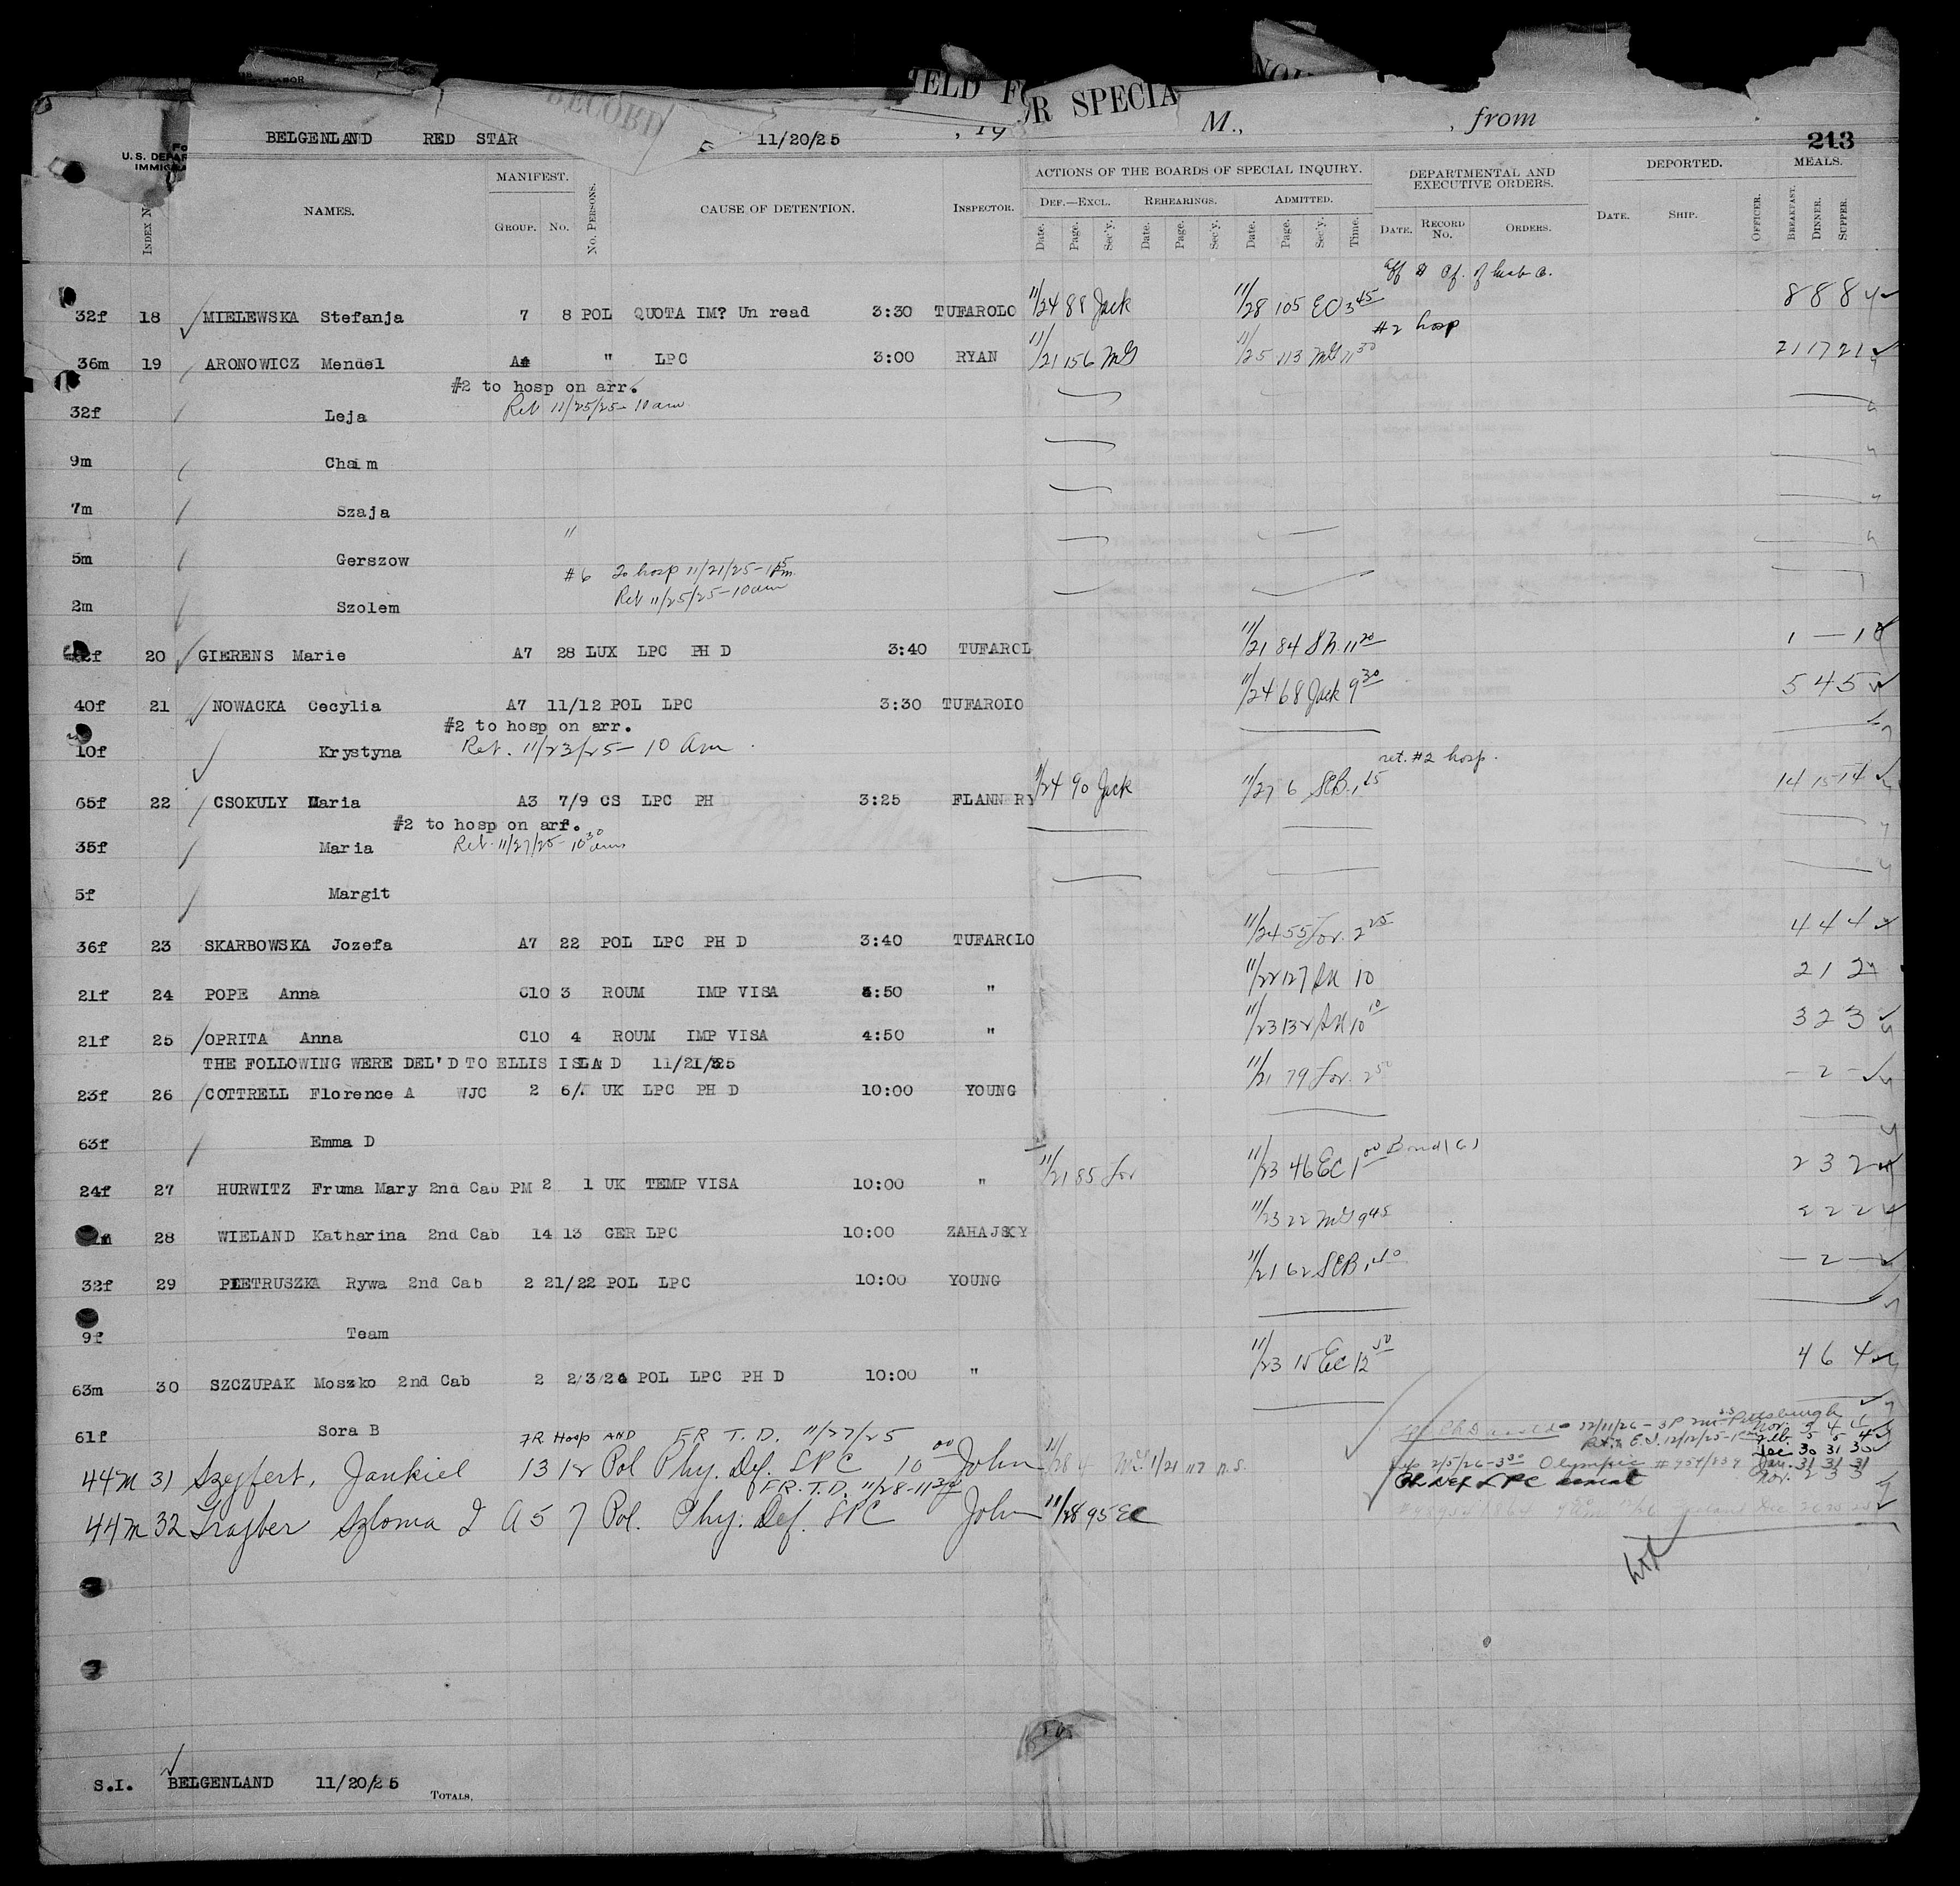 RECORD
HELD FOR SPECIA
M., , from
BELGENLAND RED STAR 11/20/25 , 19 213
U.S. DEPAR
IMMIG
MANIFEST. ACTIONS OF THE BOARDS OF SPECIAL INQUIRY. DEPARTMENTAL AND EXECUTIVE ORDERS. DEPORTED. MEALS.
INDEX N NAMES. GROUP. No. No. PERSONS. CAUSE OF DETENTION. INSPECTOR. DEF.—EXCL. REHEARINGS. ADMITTED. DATE. RECORD No. ORDERS. DATE. SHIP. OFFICER. BREAKFAST. DINNER. SUPPER.
Date. Page. Sec'y. Date. Page. Sec'y. Date. Page. Sec'y. Time.
32f 18 MIELEWSKA Stefanja 7 8 POL QUOTA IM? Un read 3:30 TUFAROLO 11/24 88 Jack 11/28 105 EC 3 45 8 8 8
#2 hosp
36m 19 ARONOWICZ Mendel A4 " LPC 3:00 RYAN 11/21 156 McG 11/25 113 McG 11 30 21 17 21
#2 to hosp on arr.
Ret 11/25/25 - 10 am
32f Leja
9m Chaim
7m Szaja
"
5m Gerszow
#6 To hosp 11/21/25 - 1 15 pm
Ret 11/25/25 - 10 am
2m Szolem
2f 20 GIERENS Marie A7 28 LUX LPC PH D 3:40 TUFAROL 11/21 84 Sh. 11 20 1 — 1
40f 21 NOWACKA Cecylia A7 11/12 POL LPC 3:30 TUFAROIO 11/24 68 Jack 9 30 5 4 5
#2 to hosp on arr.
10f Krystyna Ret. 11/23/25 - 10 Am
ret. #2 hosp.
65f 22 CSOKULY Maria A3 7/9 CS LPC PH 3:25 FLANNERY 11/24 90 Jack 11/27 6 SCB 1 15 14 15 14
#2 to hosp on arr.
35f Maria Ret. 11/27/25 10 30 am
5f Margit
36f 23 SKARBOWSKA Jozefa A7 22 POL LPC PH D 3:40 TUFAROLO 11/24 55 for. 2 25 4 4 4
21f 24 POPE Anna C10 3 ROUM IMP VISA 4:50 " 11/22 127 SH 10 2 1 2
21f 25 OPRITA Anna C10 4 ROUM IMP VISA 4:50 " 11/23 132 SH 10 10 3 2 3
THE FOLLOWING WERE DEL'D TO ELLIS ISLA D 11/21/25
23f 26 COTTRELL Florence A WJC 2 6/7 UK LPC PH D 10:00 YOUNG 11/21 79 for. 2 50 — 2 —
63f Emma D
24f 27 HURWITZ Fruma Mary 2nd Cab PM 2 1 UK TEMP VISA 10:00 " 11/21 85 for 11/23 46 EC 1 00 Bond (6) 2 3 2
28 WIELAND Katharina 2nd Cab 14 13 GER LPC 10:00 ZAHAJSKY 11/23 22 McG 9 45 2 2 2
32f 29 PIETRUSZKA Rywa 2nd Cab 2 21/22 POL LPC 10:00 YOUNG 11/21 62 SCB 1 40 — 2 —
9f Team
63m 30 SZCZUPAK Moszko 2nd Cab 2 2/3/24 POL LPC PH D 10:00 " 11/23 15 EC 12 50 4 6 4
61f Sora B
FR Hosp AND FR T. D. 11/27/25
44m 31 Szeyfert, Jankiel 13 12 Pol Phy. Def. LPC 10 00 John 11/28 4 McG 1/21 117 n.s.
FR. T. D. 11/28 - 11 30
44m 32 Trajber Szloma I A 5 7 Pol. Phy. Def. LPC John 11/28 95 EC
S.I. BELGENLAND 11/20/25
TOTALS,